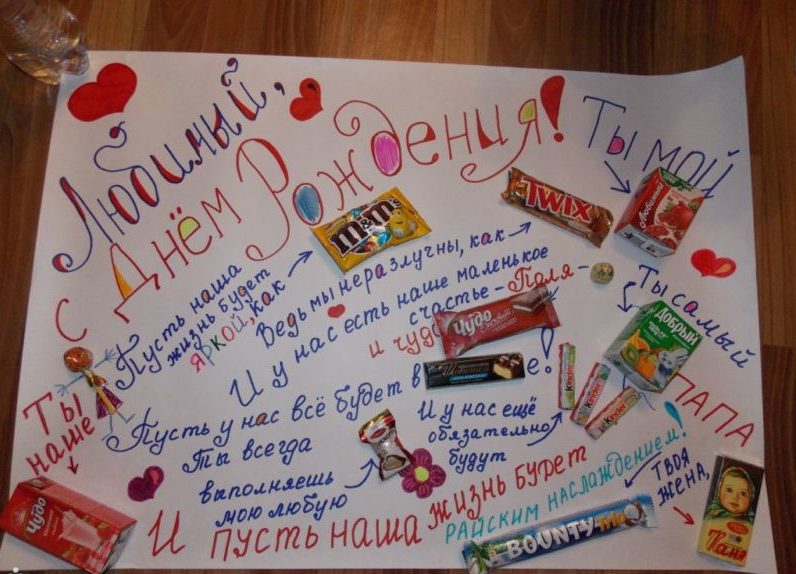 Любимый,
с Днём Рождения!
Ты мой
Любимый
TWIX
m&m's
Пусть наша
жизнь будет
яркой, как
Ведь мы неразлучны, как
И у нас есть наше маленькое
счастье - Поля -
и чудо
Чудо
Ты самый
Добрый
ПАПА
Ты
наше
Чудо
Пусть у нас всё будет в е!
Kinder
Kinder
Kinder
Ты всегда
выполняешь
мою любую
И у нас ещё
обязательно
будут
И пусть наша жизнь будет
райским наслаждением!
BOUNTY trio
Твоя
жена,
Таня